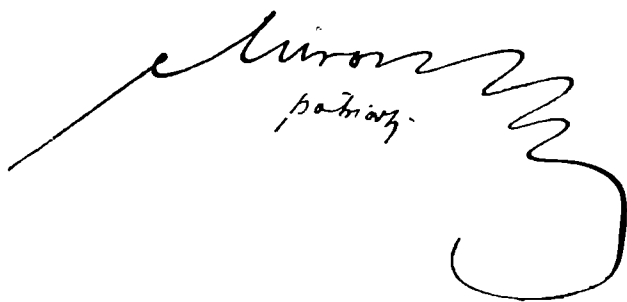 Miron
patriarh.